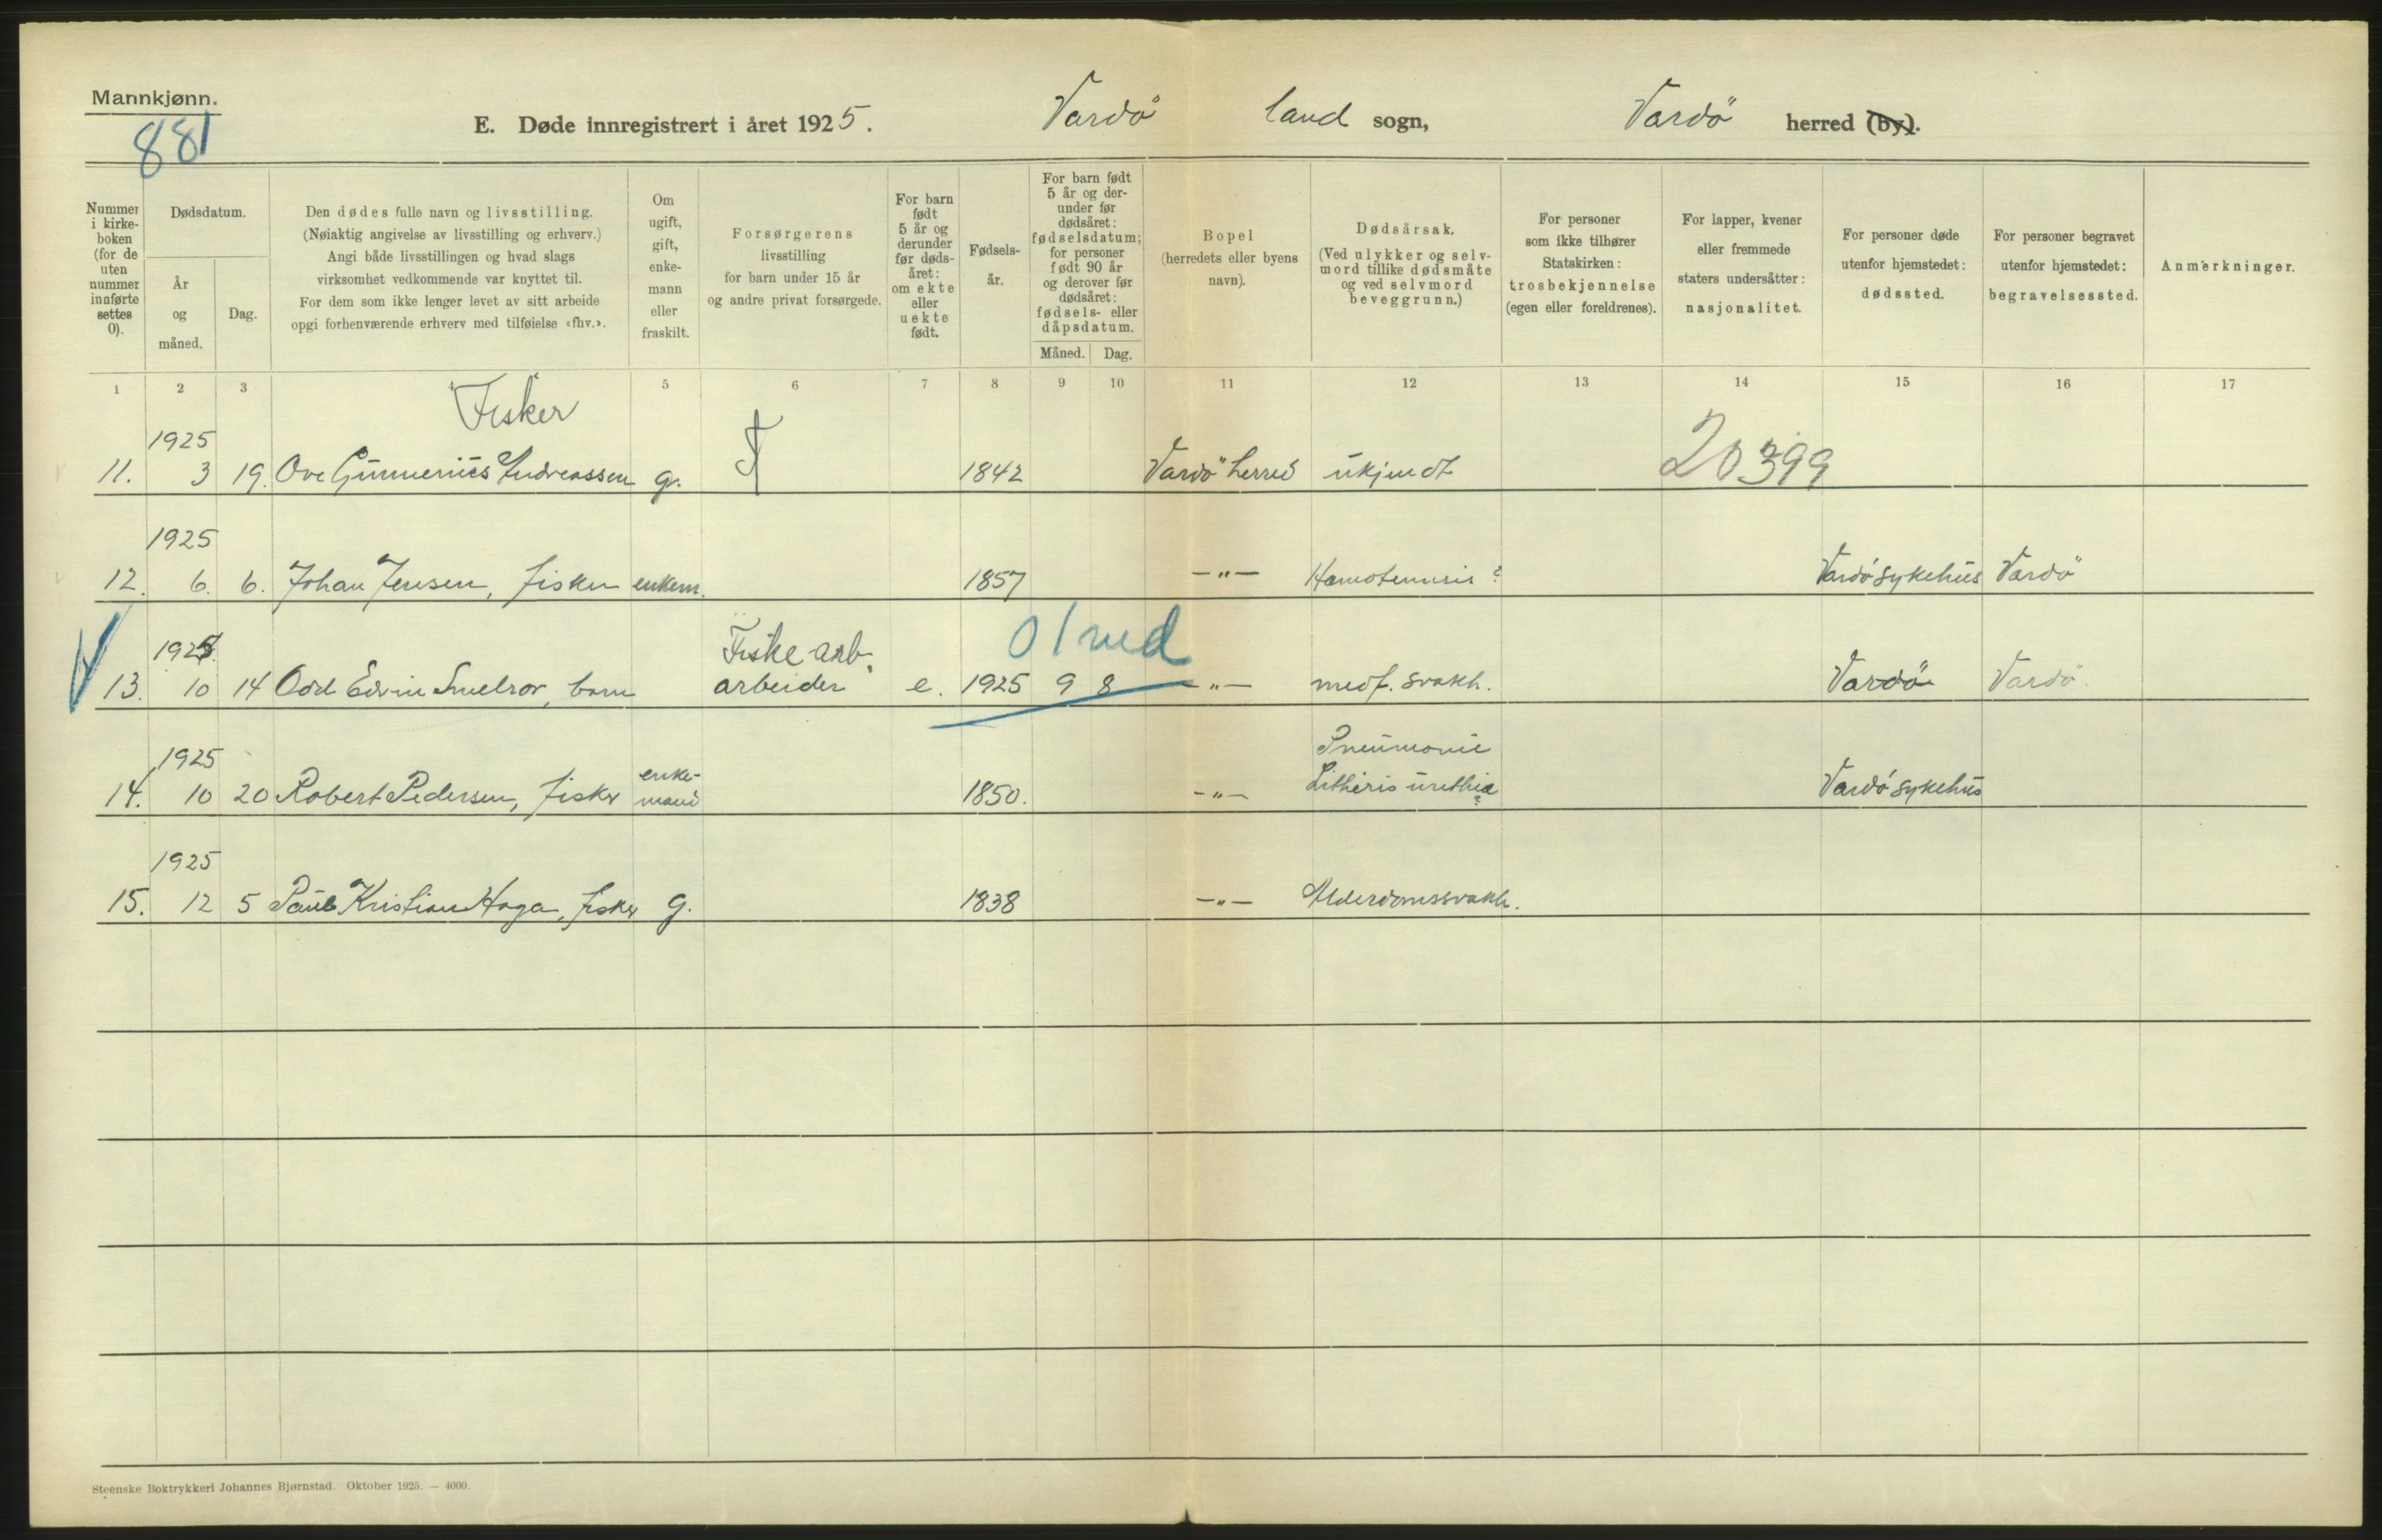 Mannkjønn.
881
E. Døde innregistrert i året 1925. Vardö land sogn, Vardö herred (by).
Nummer i kirkeboken (for de uten nummer innførte settes 0).
Dødsdatum.
År og måned.
Dag.
Den dødes fulle navn og livsstilling.
(Nøiaktig angivelse av livsstilling og erhverv.)
Angi både livsstillingen og hvad slags
virksomhet vedkommende var knyttet til.
For dem som ikke lenger levet av sitt arbeide
opgi forhenværende erhverv med tilføielse «fhv.».
Om ugift, gift, enkemann eller fraskilt.
Forsørgerens
livsstilling
for barn under 15 år
og andre privat forsørgede.
For barn født 5 år og derunder før dødsåret: om ekte eller uekte født.
Fødselsår.
For barn født 5 år og derunder før dødsåret: fødselsdatum; for personer født 90 år og derover før dødsåret: fødsels- eller dåpsdatum.
Måned. Dag.
Bopel
(herredets eller byens
navn).
Dødsårsak.
(Ved ulykker og selvmord tillike dødsmåte
og ved selvmord
beveggrunn.)
For personer
som ikke tilhører
Statskirken:
trosbekjennelse
(egen eller foreldrenes).
For lapper, kvener
eller fremmede
staters undersåtter:
nasjonalitet.
For personer døde
utenfor hjemstedet:
dødssted.
For personer begravet
utenfor hjemstedet:
begravelsessted.
Anmerkninger.
1 2 3 4 5 6 7 8 9 10 11 12 13 14 15 16 17
Fisker
1925
11. 3 19. Ove Gunnerius Andreassen g. 1842 Vardö herred ukjendt 20399
1925
12. 6. 6. Johan Jensen, fisker enkem. 1857 —"— Vardö sykehus Vardö
1925 Fiske arb. 01 md
13. 10 14 Odd Edvin Smelror, barn arbeider e. 1925 9 8 —"— medf. svakh. Vardö Vardö.
1925 Pneumonie
14. 10 20 Robert Pedersen, fisker enkemand 1850. —"— Vardö sykehus
1925
15. 12 5 Paul Kristian Haga, fisker g. 1838 —"— Alderdomssvakh.
Steenske Boktrykkeri Johannes Bjørnstad. Oktober 1925. — 4000.